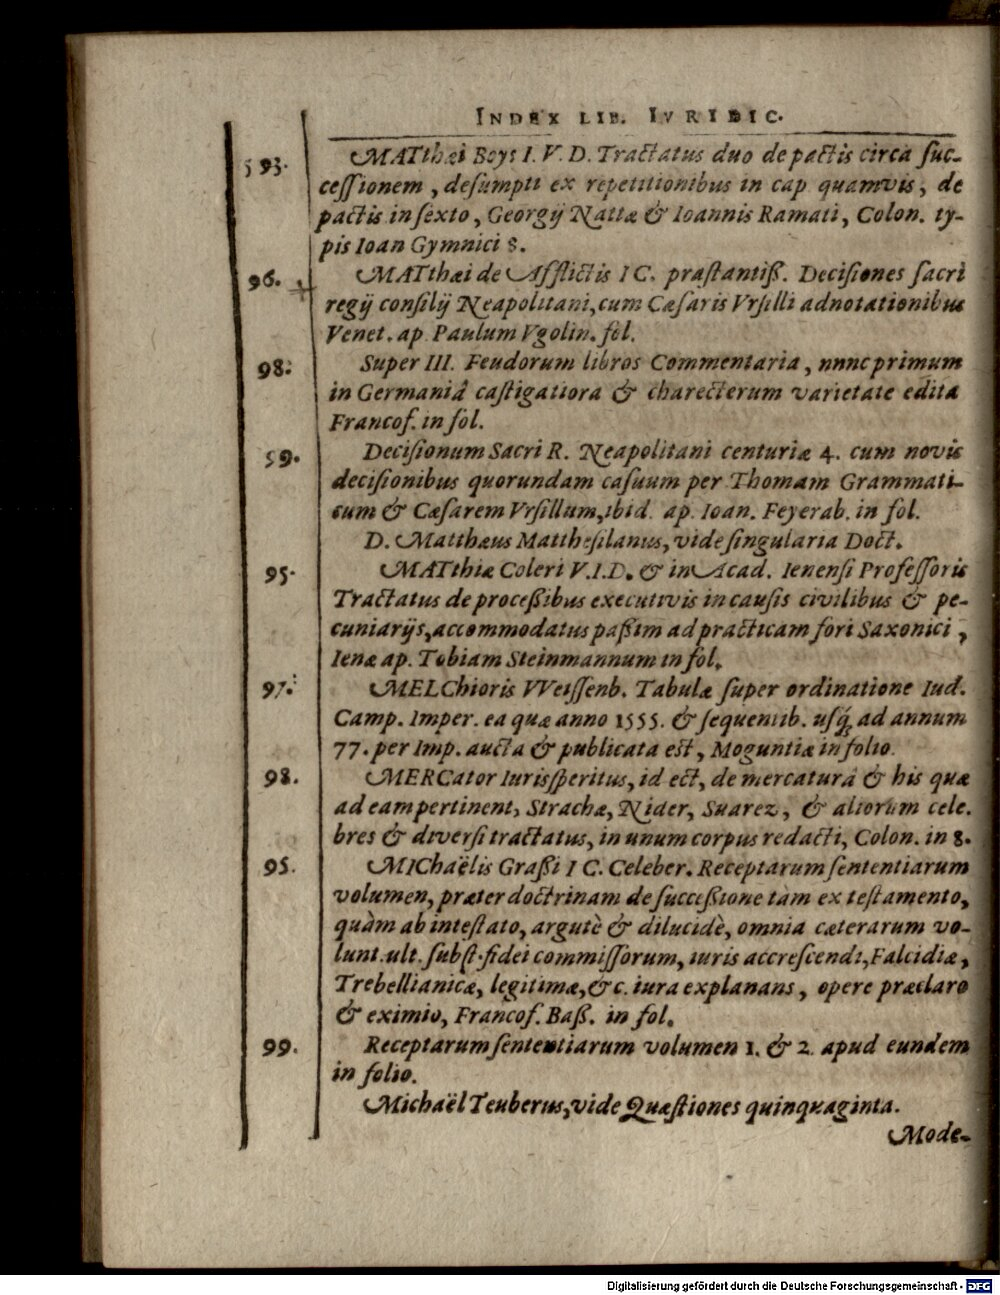 INDEX LIB. IVRIDIC.
593. MATthæi Boys I. V. D. Tractatus duo de pactis circa suc-
cessionem, desumpti ex repetitionibus in cap quamvis, de
pactis in sexto, Georgij Nattæ & Ioannis Ramati, Colon. ty-
pis Ioan Gymnici 8.
96. MATthæi de Afflictis I C. præstantiß. Decisiones sacri
regij consilij Neapolitani, cum Cæsaris Vrsilli adnotationibus
Venet. ap. Paulum Vgolin. fol.
98. Super III. Feudorum libros Commentaria, nnnc primum
in Germaniâ castigatiora & charecterum varietate edita
Francof. in fol.
59. Decisionum Sacri R. Neapolitani centuriæ 4. cum novis
decisionibus quorundam casuum per Thomam Grammati-
cum & Cæsarem Vrsillum, ibid. ap. Ioan. Feyerab. in fol.
D. Matthæus Matthesilanus, vide singularia Doct.
95. MATthiæ Coleri V.I.D. & in Acad. Ienensi Professoris
Tractatus de proceßibus executivis in causis civilibus & pe-
cuniarijs, accommodatus paßim ad practicam fori Saxonici,
Ienæ ap. Tobiam Steinmannum in fol.
97. MELChioris VVeissenb. Tabulæ super ordinatione Iud.
Camp. Imper. ea quæ anno 1555. & sequentib. usq; ad annum
77. per Imp. aucta & publicata est, Moguntiæ in folio.
98. MERCator Iurissperitus, id ect, de mercaturâ & his quæ
ad eam pertinent, Strachæ, Nider, Suarez, & aliorum cele.
bres & diversi tractatus, in unum corpus redacti, Colon. in 8.
95. MIChaëlis Graßi I C. Celeber. Receptarum sententiarum
volumen, præter doctrinam de succeßione tàm ex testamento,
quàm ab intestato, argutè & dilucidè, omnia cæterarum vo-
lunt. ult. subst. fidei commissorum, iuris accrescendi, Falcidiæ,
Trebellianicæ, legitimæ, &c. iura explanans, opere præclaro
& eximio, Francof. Baß. in fol.
99. Receptarum sententiarum volumen 1. & 2. apud eundem
in folio.
Michaël Teuberus, vide Quæstiones quinquaginta.
Mode-
Digitalisierung gefördert durch die Deutsche Forschungsgemeinschaft - DFG